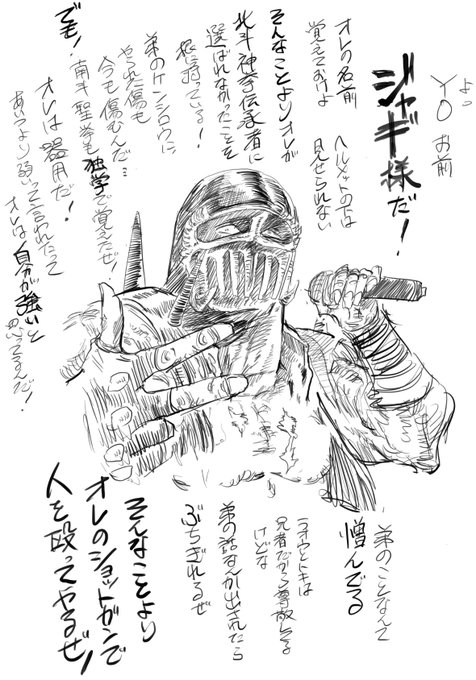 よっ
YO お前
ジャギ様だ！
オレの名前
覚えておけよ
ヘルメットの下は
見せられない
そんなことよりオレが
北斗神拳伝承者に
選ばれなかったことを
根に持っている！
弟のケンシロウに
やられた傷も
今も傷むんだ…
でも！
南斗聖拳も独学で覚えたぜ！
オレは器用だ！
あいつより弱いって言われたって
オレは自分が強いと
思ってるんだ！
弟のことなんて
憎んでる
ラオウとトキは
兄者だから尊敬してる
けどな
弟の話なんか出されたら
ぶちぎれるぜ
そんなことより
オレのショットガンで
人を殴ってやるぜ！